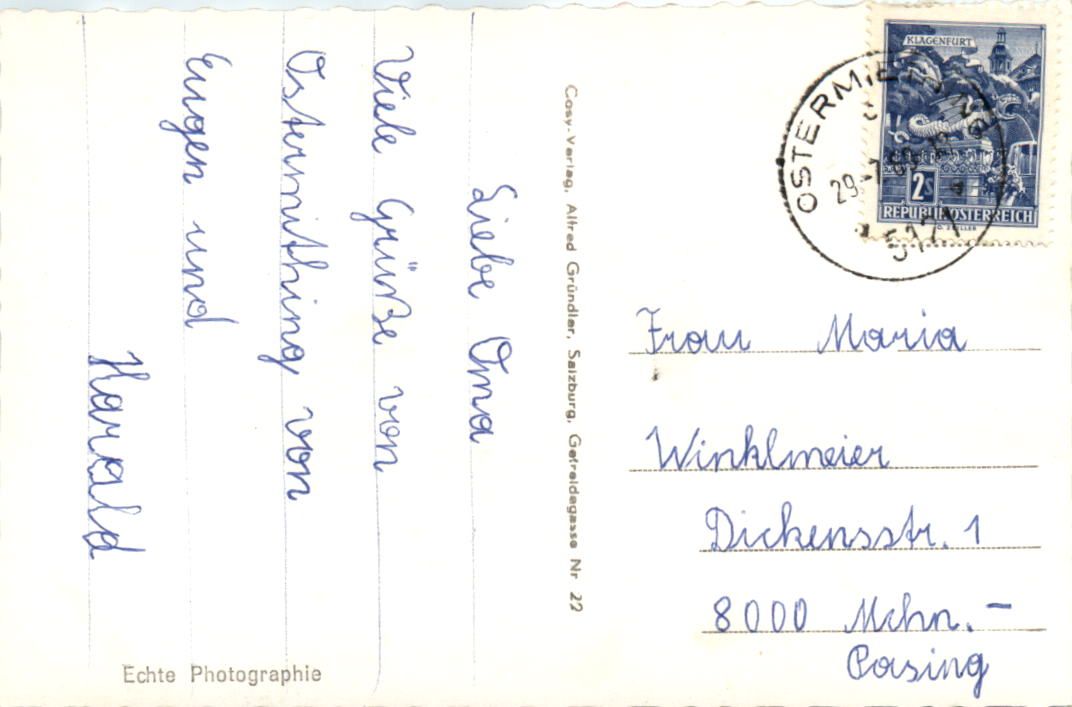 Liebe Oma
Viele Grüße von
Ostermithing von
Eugen und
Harald
Echte Photographie
Cosy-Verlag, Alfred Gründler, Salzburg, Getreidegasse Nr 22
KLAGENFURT
2S
REPUBLIK ÖSTERREICH
29.-7.69
5121
Frau Maria
Winklmeier
Dickensstr. 1
8000 Mchn.-
Pasing